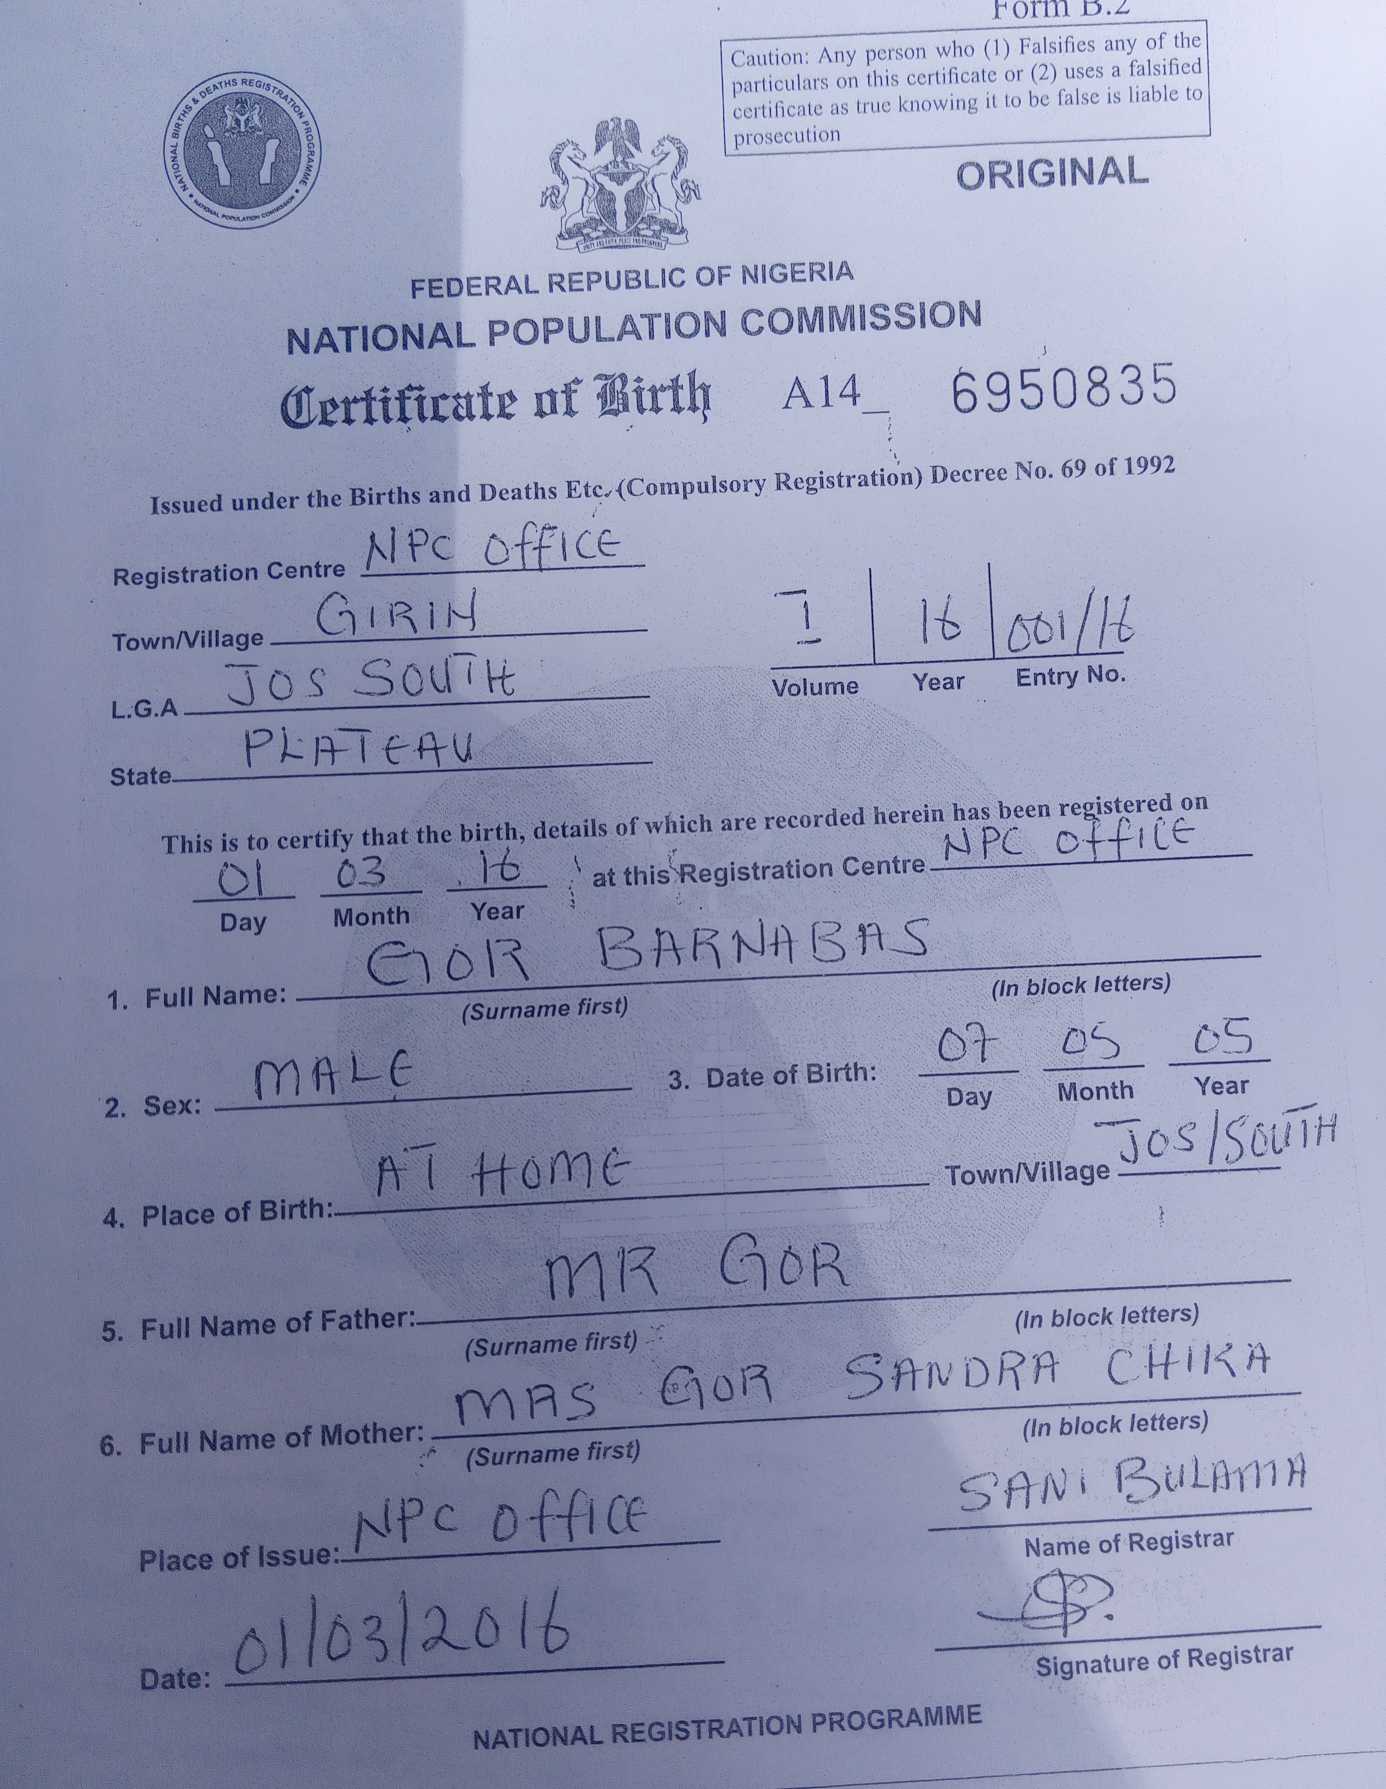 Form B.2
Caution: Any person who (1) Falsifies any of the
particulars on this certificate or (2) uses a falsified
certificate as true knowing it to be false is liable to
prosecution
NATIONAL BIRTHS & DEATHS REGISTRATION PROGRAMME
NATIONAL POPULATION COMMISSION
ORIGINAL
FEDERAL REPUBLIC OF NIGERIA
NATIONAL POPULATION COMMISSION
Certificate of Birth A14_ 6950835
Issued under the Births and Deaths Etc. (Compulsory Registration) Decree No. 69 of 1992
Registration Centre NPC OFFICE
Town/Village GIRIN
L.G.A JOS SOUTH
State PLATEAU
I 16 001/16
Volume Year Entry No.
This is to certify that the birth, details of which are recorded herein has been registered on
01 03 16 at this Registration Centre NPC OFFICE
Day Month Year
1. Full Name: GOR BARNABAS
(Surname first) (In block letters)
2. Sex: MALE 3. Date of Birth: 07 05 05
Day Month Year
4. Place of Birth: AT HOME Town/Village JOS/SOUTH
5. Full Name of Father: MR GOR
(Surname first) (In block letters)
6. Full Name of Mother: MRS GOR SANDRA CHIKA
(Surname first) (In block letters)
Place of Issue: NPC OFFICE
SANI BULAMA
Name of Registrar
Date: 01/03/2016
Signature of Registrar
NATIONAL REGISTRATION PROGRAMME